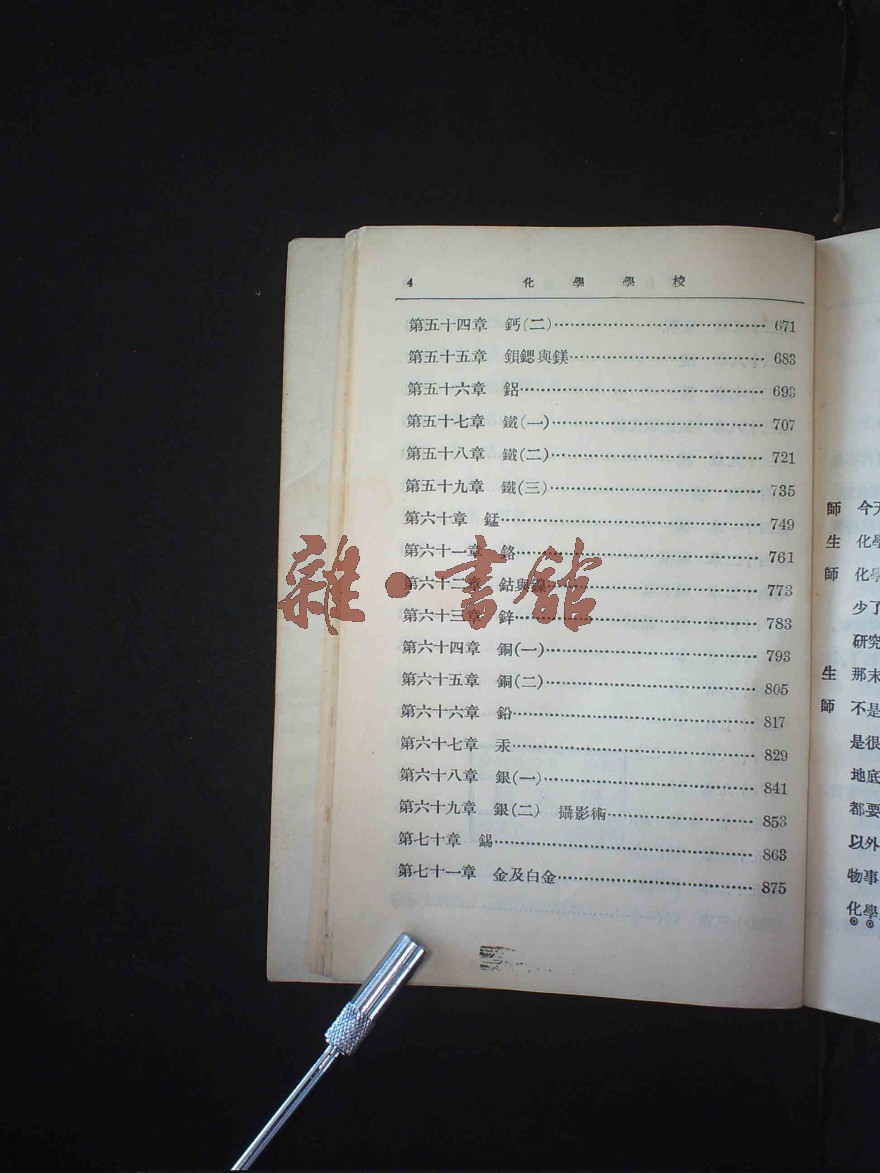 4 化學學校
第五十四章 鈣(二)……………………………… 671
第五十五章 鋇鍶與鎂……………………………… 683
第五十六章 鋁……………………………… 693
第五十七章 鐵(一)……………………………… 707
第五十八章 鐵(二)……………………………… 721
第五十九章 鐵(三)……………………………… 735
第六十章 錳……………………………… 749
第六十一章 鉻……………………………… 761
第六十二章 鈷與鎳……………………………… 773
第六十三章 鋅……………………………… 783
第六十四章 銅(一)……………………………… 793
第六十五章 銅(二)……………………………… 805
第六十六章 鉛……………………………… 817
第六十七章 汞……………………………… 829
第六十八章 銀(一)……………………………… 841
第六十九章 銀(二) 攝影術……………………………… 853
第七十章 錫……………………………… 863
第七十一章 金及白金……………………………… 875
雜·書館
師 今天
生 化學
師 化學
少了
研究
生 那末
師 不是
是很
地底
都要
以外
物事
化學